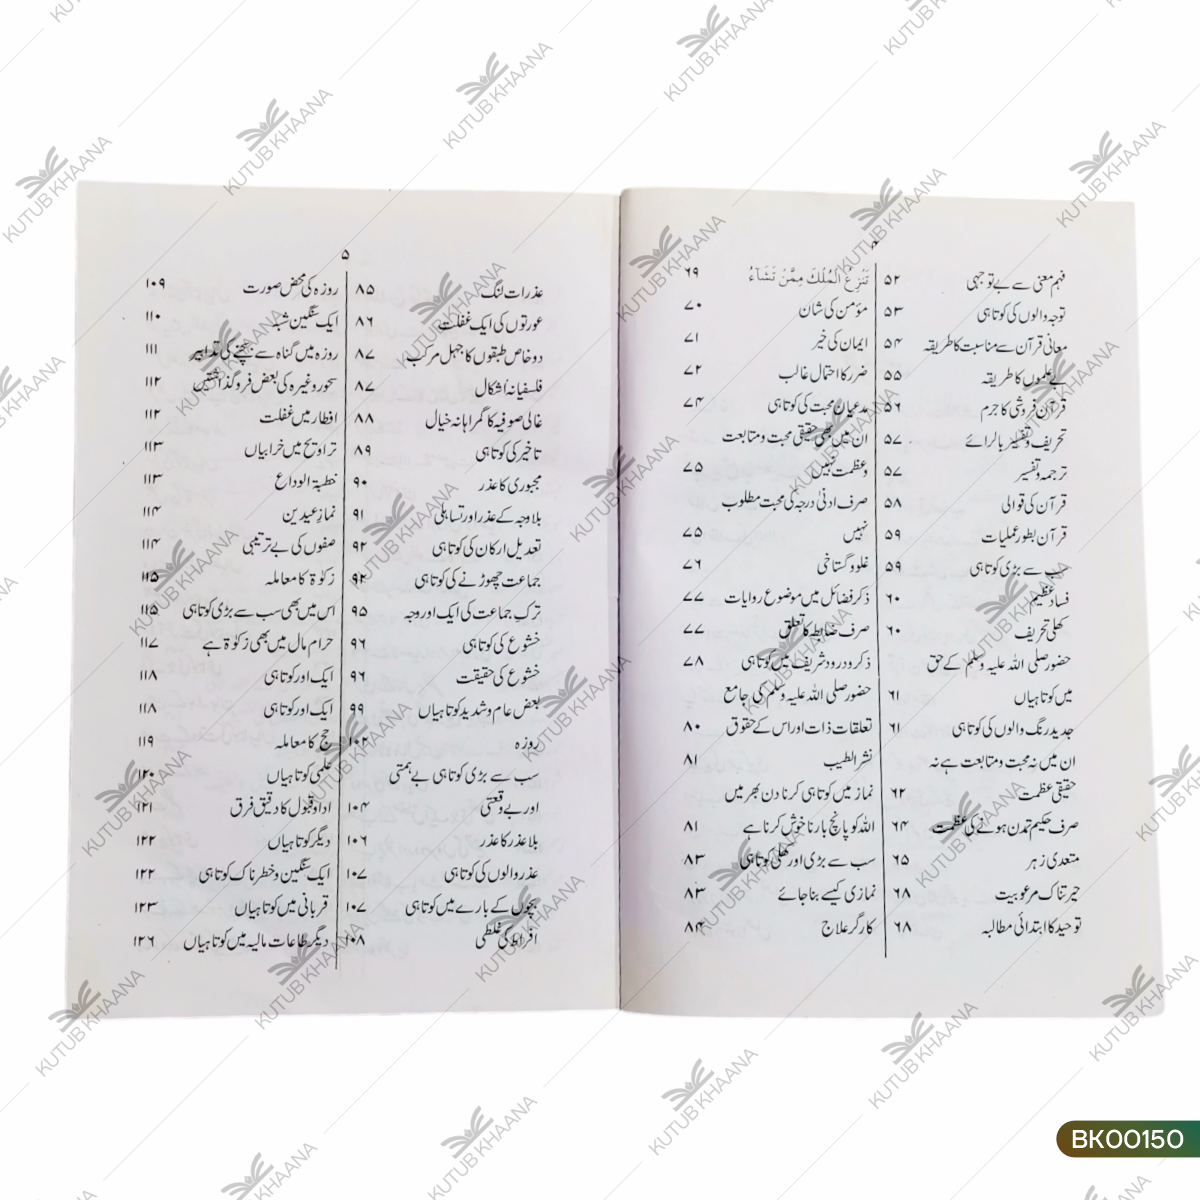 ۴
فہم معنی سے بے توجہی ۵۲
توجہ والوں کی کوتاہی ۵۳
معانی قرآن سے مناسبت کا طریقہ ۵۴
بے علموں کا طریقہ ۵۵
قرآن فروشی کا جرم ۵۶
تحریف و تفسیر بالرائے ۵۷
ترجمہ و تفسیر ۵۷
قرآن کی قوالی ۵۸
قرآن بطور عملیات ۵۹
سب سے بڑی کوتاہی ۵۹
فساد عظیم ۶۰
کھلی تحریف ۶۰
حضور صلی اللہ علیہ وسلم کے حق
میں کوتاہیاں ۶۱
جدید رنگ والوں کی کوتاہی ۶۱
ان میں نہ محبت و متابعت ہے نہ
حقیقی عظمت ۶۲
صرف حکیم تمدن ہونے کی عظمت ۶۴
متعدی زہر ۶۵
حیرتناک مرعوبیت ۶۸
توحید کا ابتدائی مطالبہ ۶۸
تَنْزِعُ الْمُلْكَ مِمَّنْ تَشَاءُ ۶۹
مؤمن کی شان ۷۰
ایمان کی خیر ۷۱
ضرر کا احتمال غالب ۷۲
مدعیان محبت کی کوتاہی ۷۴
ان میں بھی حقیقی محبت و متابعت
و عظمت نہیں ۷۵
صرف ادنیٰ درجہ کی محبت مطلوب
نہیں ۷۵
غلو و گستاخی ۷۶
ذکر فضائل میں موضوع روایات ۷۷
صرف ضابطہ کا تعلق ۷۷
ذکر و درود شریف میں کوتاہی ۷۸
حضور صلی اللہ علیہ وسلم کی جامع
تعلقات ذات اور اس کے حقوق ۸۰
نشر الطیب ۸۱
نماز میں کوتاہی کرنا دن بھر میں
اللہ کو پانچ بار ناخوش کرنا ہے ۸۱
سب سے بڑی اور کھلی کوتاہی ۸۳
نمازی کیسے بنا جائے ۸۳
کارگر علاج ۸۴
۵
عذرات لنگ ۸۵
عورتوں کی ایک غفلت ۸۶
دو خاص طبقوں کا جہل مرکب ۸۷
فلسفیانہ اشکال ۸۷
غالی صوفیہ کا گمراہانہ خیال ۸۸
تاخیر کی کوتاہی ۸۹
مجبوری کا عذر ۹۰
بلاوجہ کے عذر اور تساہلی ۹۱
تعدیل ارکان کی کوتاہی ۹۲
جماعت چھوڑنے کی کوتاہی ۹۴
ترک جماعت کی ایک اور وجہ ۹۵
خشوع کی کوتاہی ۹۶
خشوع کی حقیقت ۹۶
بعض عام و شدید کوتاہیاں ۹۹
روزہ ۱۰۲
سب سے بڑی کوتاہی بے ہمتی
اور بے وقعتی ۱۰۴
بلا عذر کا عذر ۱۰۶
عذر والوں کی کوتاہی ۱۰۷
بچوں کے بارے میں کوتاہی ۱۰۷
افراط کی غلطی ۱۰۸
روزہ کی محض صورت ۱۰۹
ایک سنگین شبہ ۱۱۰
روزہ میں گناہ سے بچنے کی تدابیر ۱۱۱
سحور وغیرہ کی بعض فروگذاشتیں ۱۱۲
افطار میں غفلت ۱۱۲
تراویح میں خرابیاں ۱۱۳
خطبۃ الوداع ۱۱۳
نماز عیدین ۱۱۴
صفوں کی بے ترتیبی ۱۱۴
زکوٰۃ کا معاملہ ۱۱۵
اس میں بھی سب سے بڑی کوتاہی ۱۱۵
حرام مال میں بھی زکوٰۃ ہے ۱۱۷
ایک اور کوتاہی ۱۱۸
ایک اور کوتاہی ۱۱۸
حج کا معاملہ ۱۱۹
علمی کوتاہیاں ۱۲۰
ادا و قبول کا دقیق فرق ۱۲۱
دیگر کوتاہیاں ۱۲۲
ایک سنگین و خطرناک کوتاہی ۱۲۲
قربانی میں کوتاہیاں ۱۲۳
دیگر طاعات مالیہ میں کوتاہیاں ۱۲۶
KUTUB KHAANA
BK00150